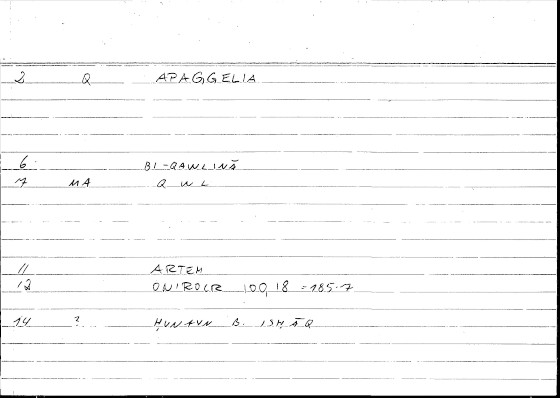 2 Q APAGGELIA
6 BI-QAWLINĀ
7 MA QWL
11 ARTEM
12 ONIROCR 100,18 = 185.7
14 ? ḤUNAYN B. ISḤĀQ